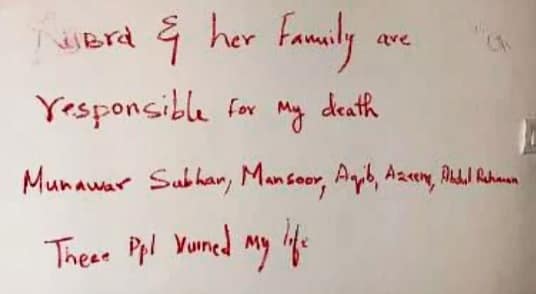 & her Family are
responsible for my death
Munawar Subhan, Mansoor, Aqib, Azeem, Abdul Rehman
These Ppl ruined my life